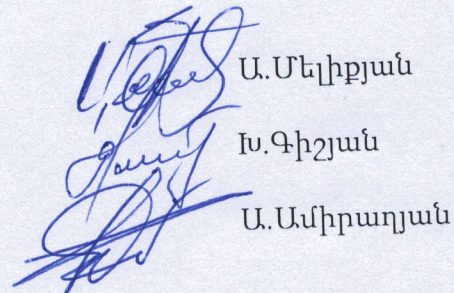 Ա.Մելիքյան
Խ.Գիշյան
Ա.Ամիրաղյան